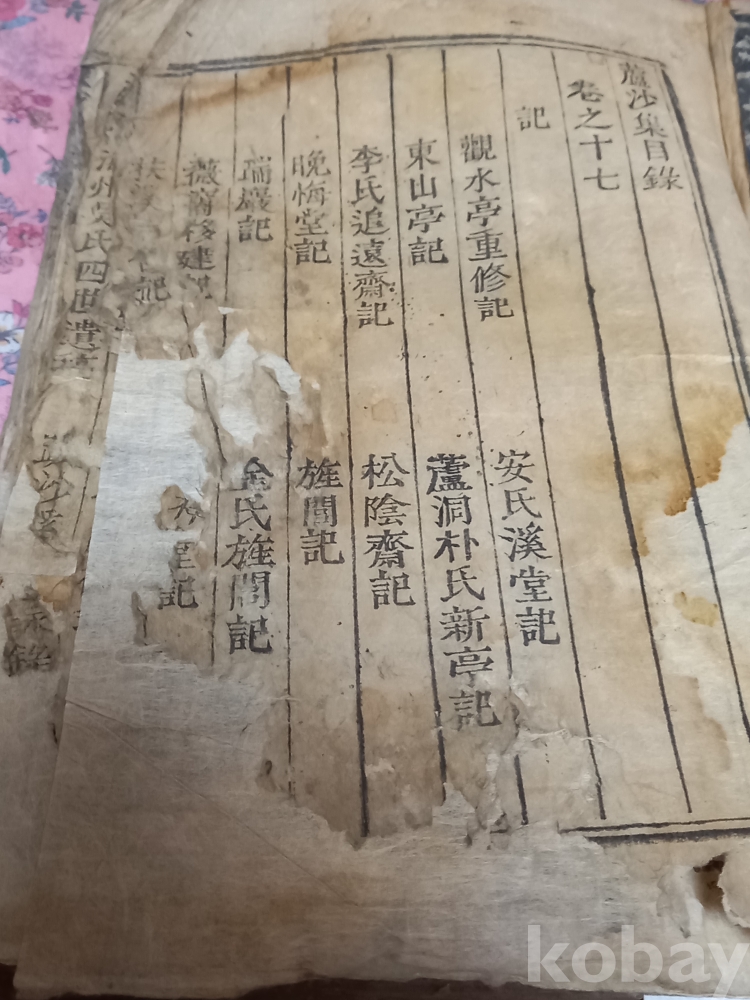 蘆沙集目錄
卷之十七
記
觀水亭重修記
安氏溪堂記
東山亭記
蘆洞朴氏新亭記
李氏追遠齋記
松陰齋記
晚悔堂記
旌閭記
瑞巖記
金氏旌閭記
移建記
記
氏四世遺
kobay